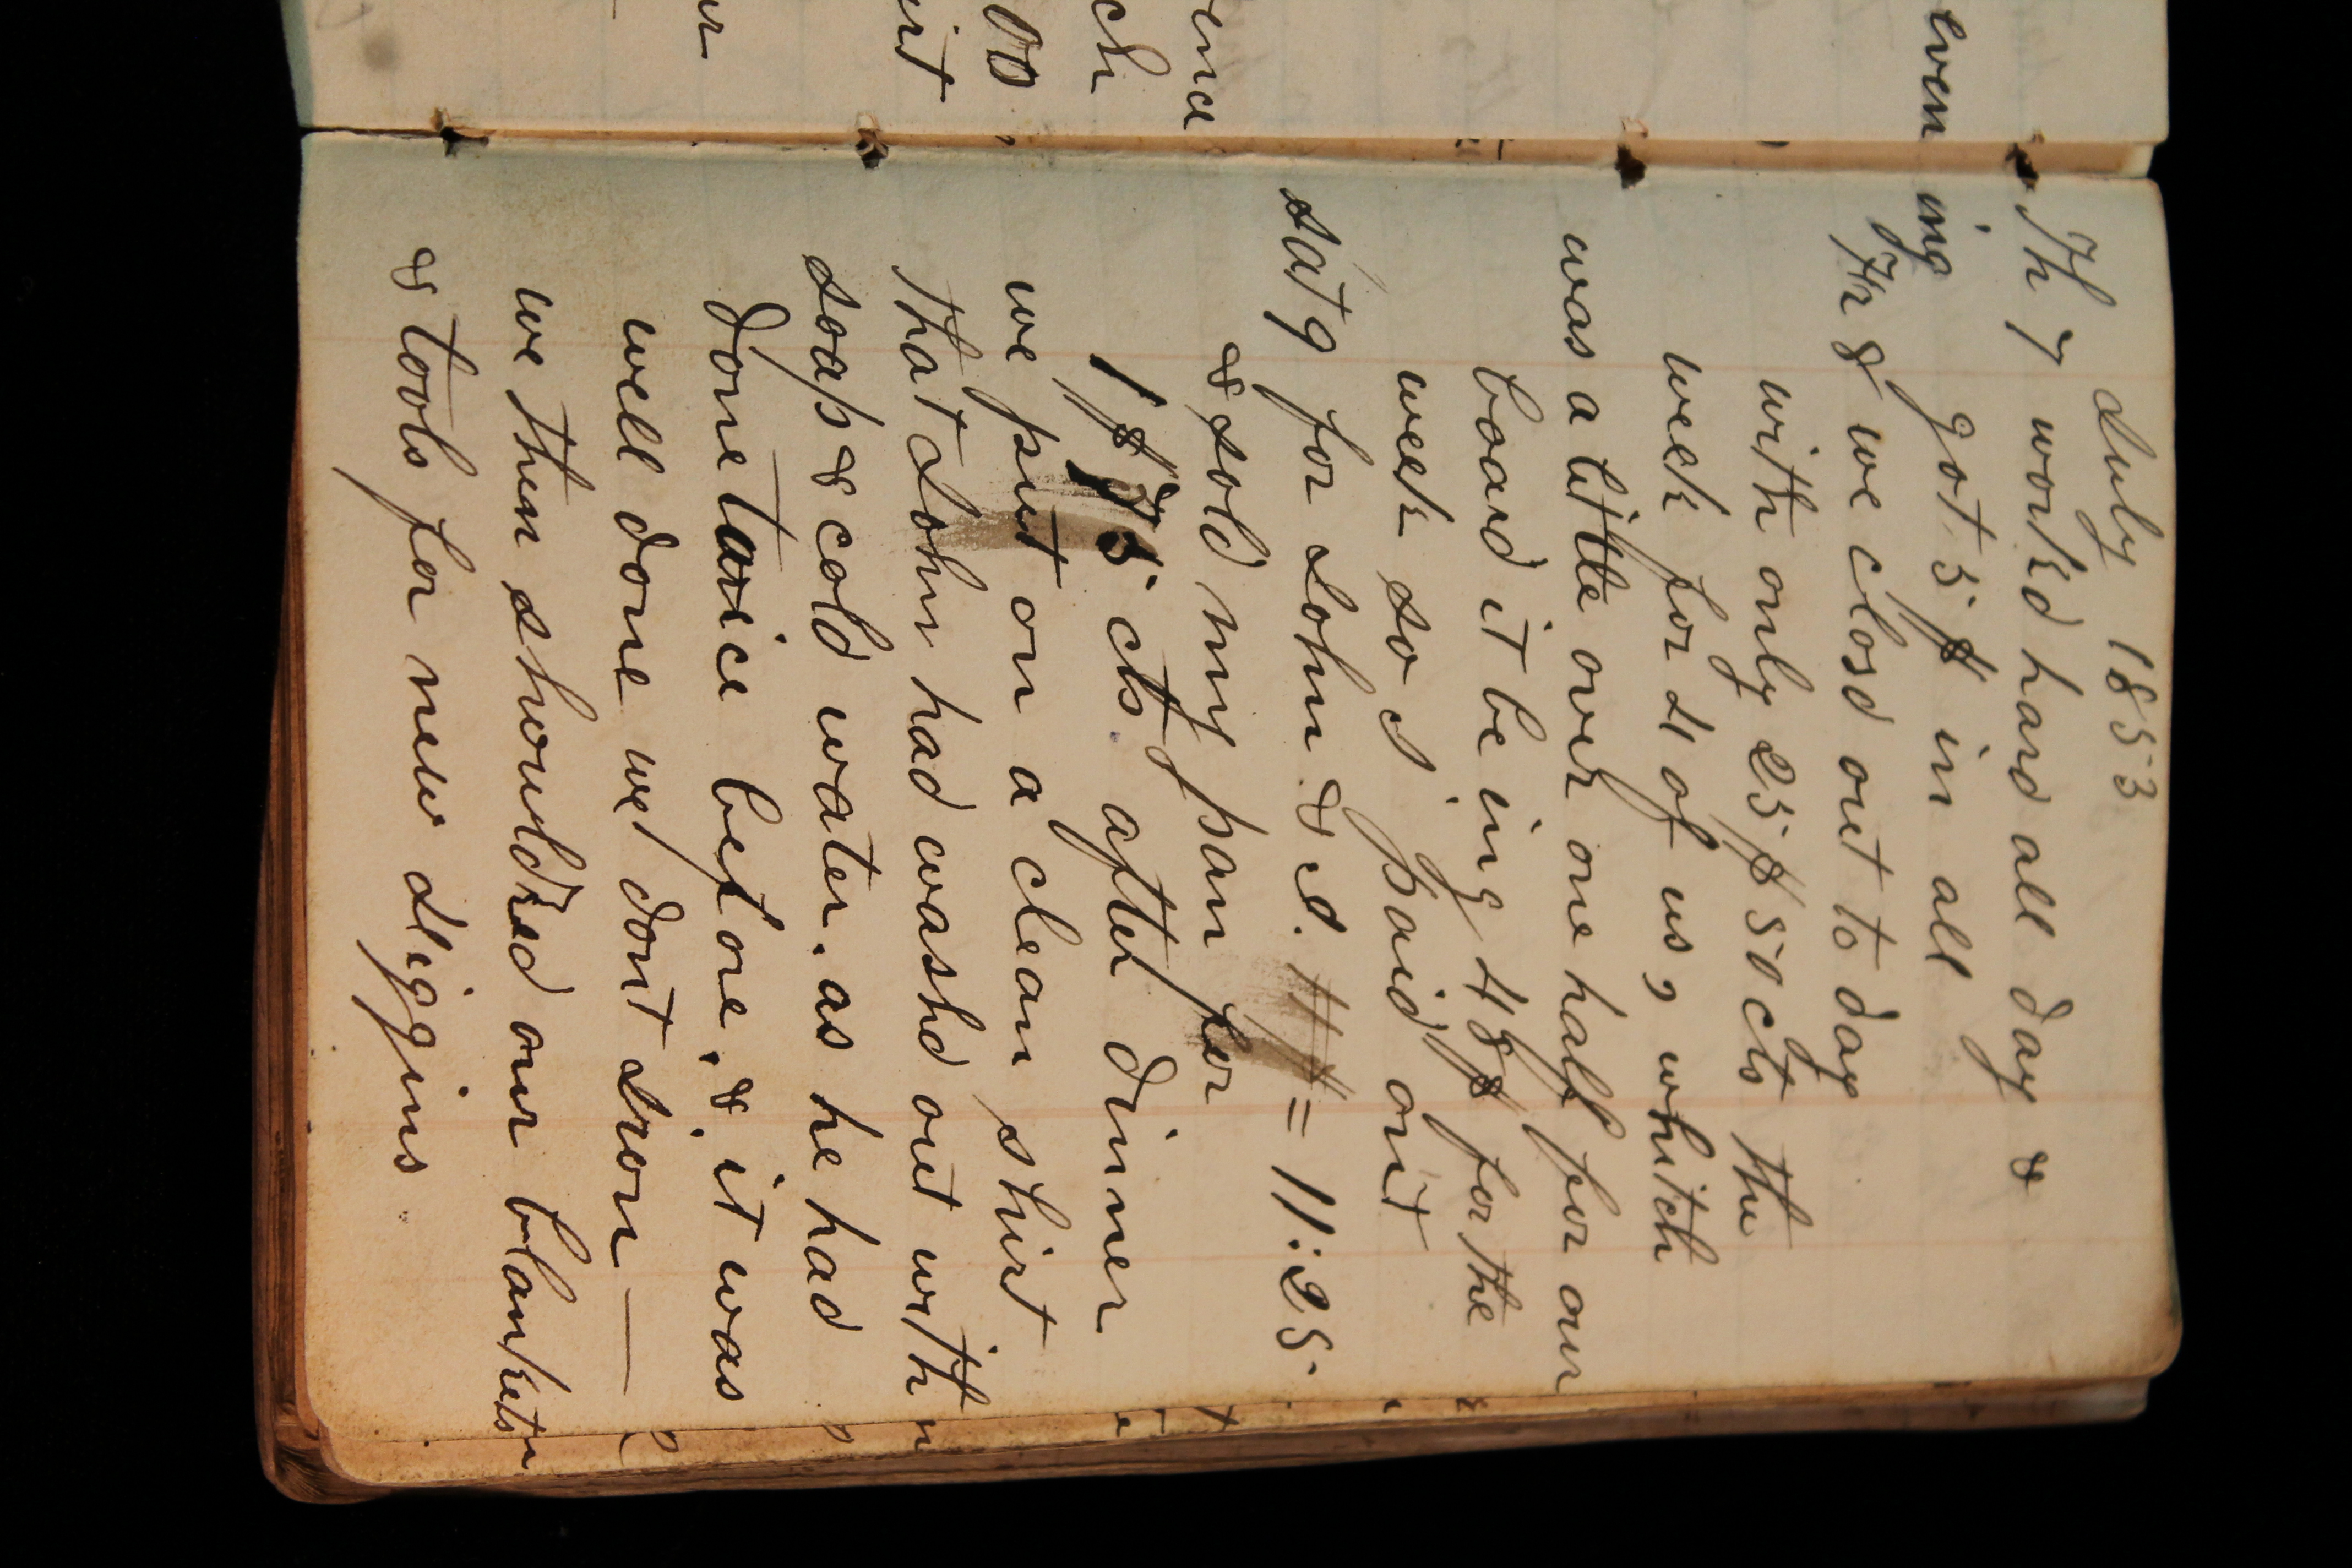 July 1853
Th 7 workd hard all day &
even ing got 5 $ in all
Fr 8 we closd out to day
with only 25 $ 50 cts the
week for 4 of us, whitch
was a little over one half for our
board it be ing 48 $ for the
week so I paid out
sat 9 for John & I. 11 $ = 11:25
& sold my pan for
1 $ 75 cts. after dinner
we put on a clean shirt.
that John had washd out with
soap & cold water. as he had
done twice before, & it was
well done we dont Iron —
we then shouldred our blankets
& tools for new Higgins